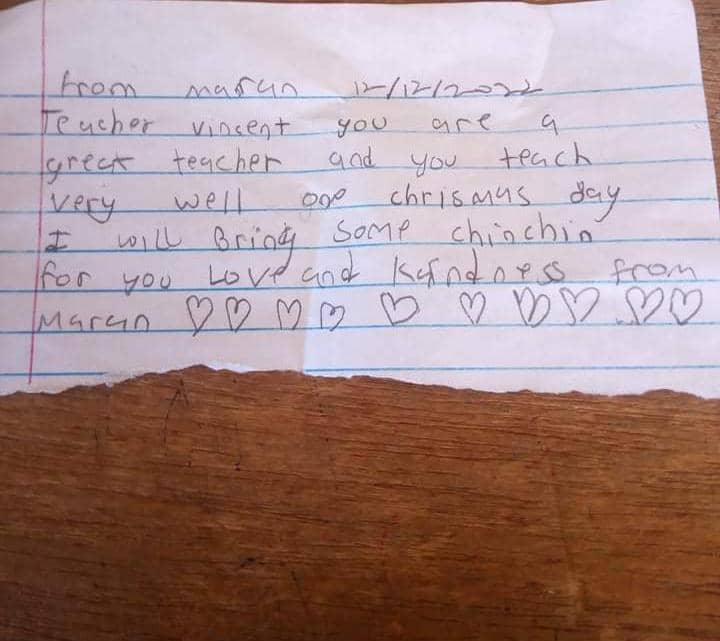 from maran 12/12/2022
Teacher vincent you are a
great teacher and you teach
very well one chrismas day
I will Bring some chinchin
for you Love and Kindness from
Maran ♡♡♡♡♡♡♡♡♡♡